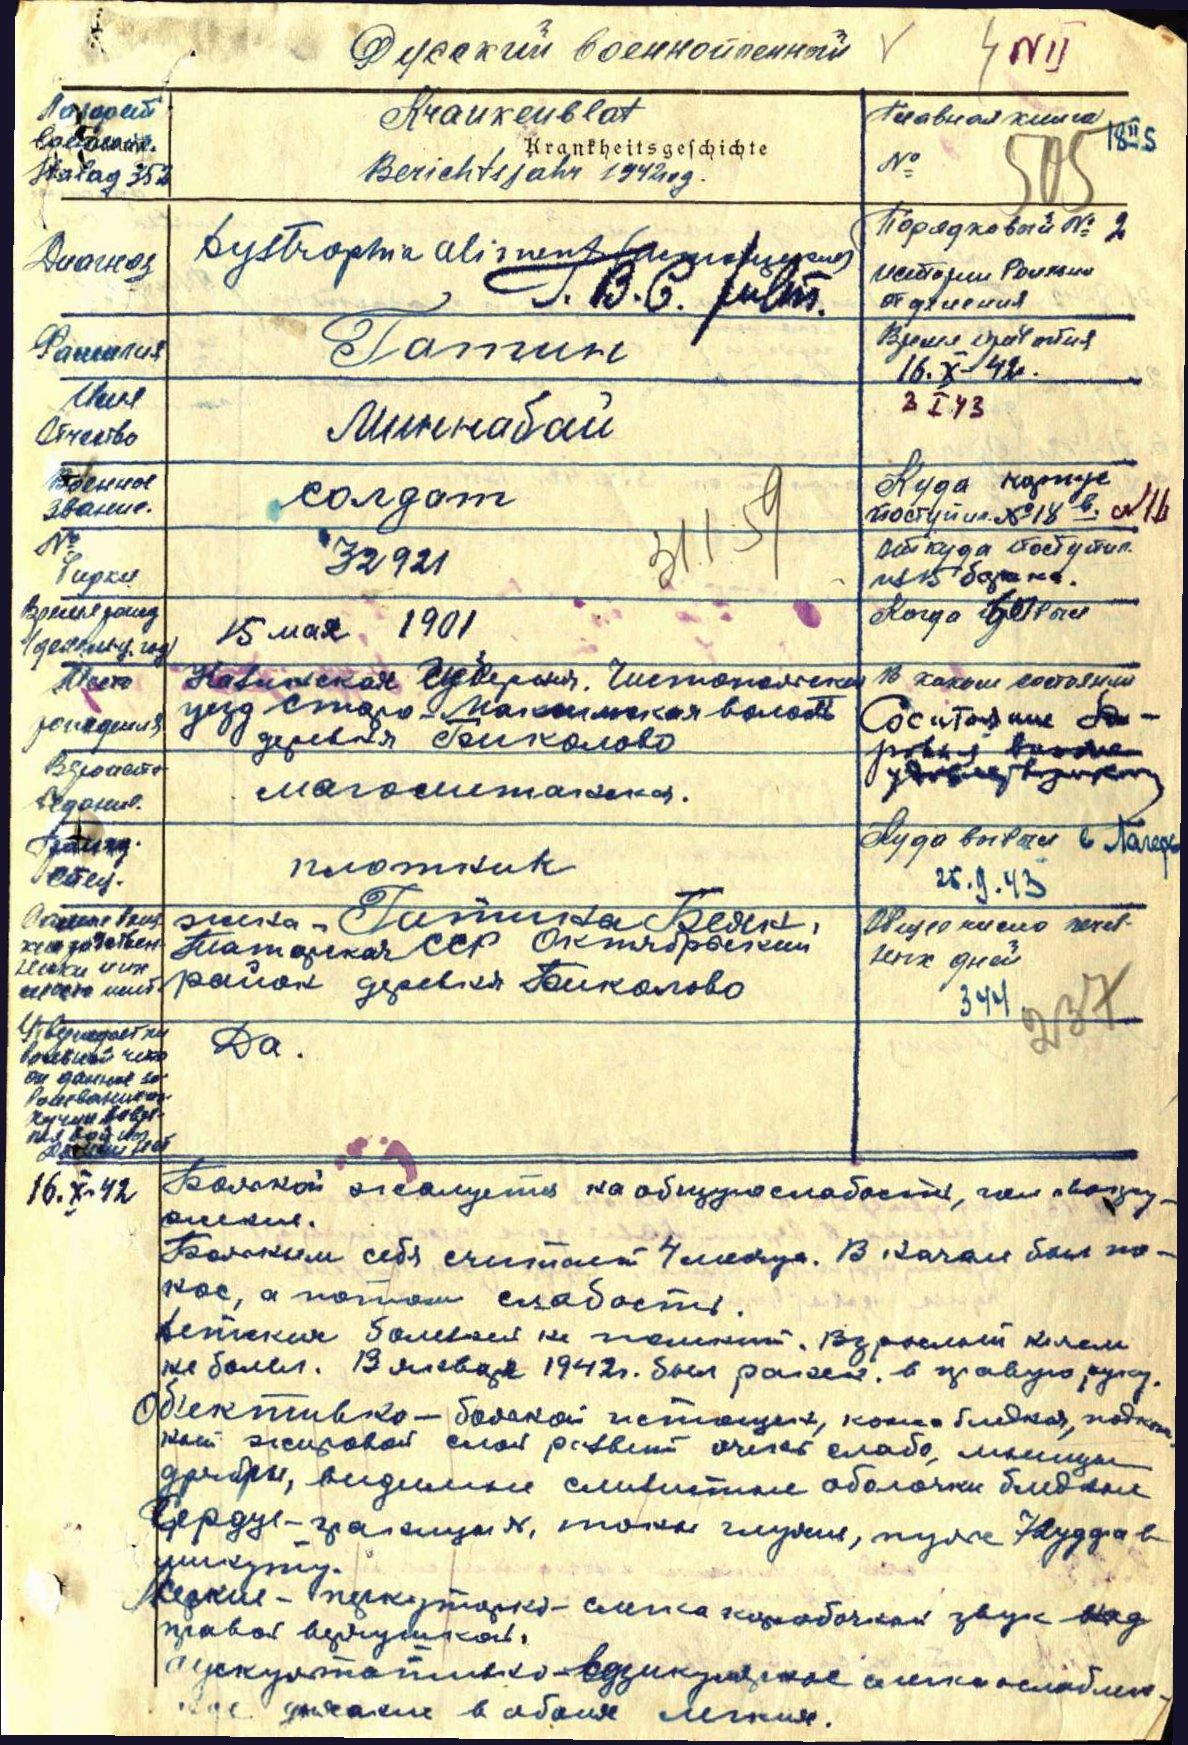 Русский военнопленный
4 N II
Лазарет
военнопл.
Stalag 352
Krankenblat
Krankheitsgeschichte
Berichtsjahr 1942 год.
Главная книга
№ 505
18 II S
Диагноз
Dystrophia aliment.
T. B. C. pulm.
Порядковый № 2
истории болезни
отделения
Фамилия
Гатин
Время прибытия
16.X-42г.
3 I 43
Имя
Отчество
Миннабай
Военное
звание.
солдат
31 I 59
Куда
поступил. №18
№
бирки
32921
Откуда поступил.
из 15 барака.
Время рожд
(день м-ц. год)
15 мая 1901
Когда убыл
Место
рождения
Казанская Губерния. Чистопольский
уезд Старо-Максимская волость
деревня Биколово
В каком состоянии
Состояние
Вероиспо-
ведание.
магометанская.
Гражд.
спец.
плотник
Куда выбыл в Лагерь
25.9.43
жена - Гатина
Татарская ССР Октябрьский
район деревня Биколово
Общее число лечеб-
ных дней
344
237
Да.
16.X-42
Больной жалуется на общую слабость,
Больным себя считает 4 месяца. В начале был по-
нос, а потом слабость.
Детских болезней не помнит. Взрослым ничем
не болел. В январе 1942г. был ранен в правую руку.
Объективно - больной истощен, кожа бледная, подкож-
ный жировой слой развит очень слабо, мышцы
дряблы, видимые слизистые оболочки бледные
Сердце - границы N, тоны глухие, пульс 72 удара в
минуту.
Легкие - перкуторно - слегка коробочный звук над
правой верхушкой.
Аускультативно - везикулярное слегка ослаблен-
ное дыхание в обоих легких.